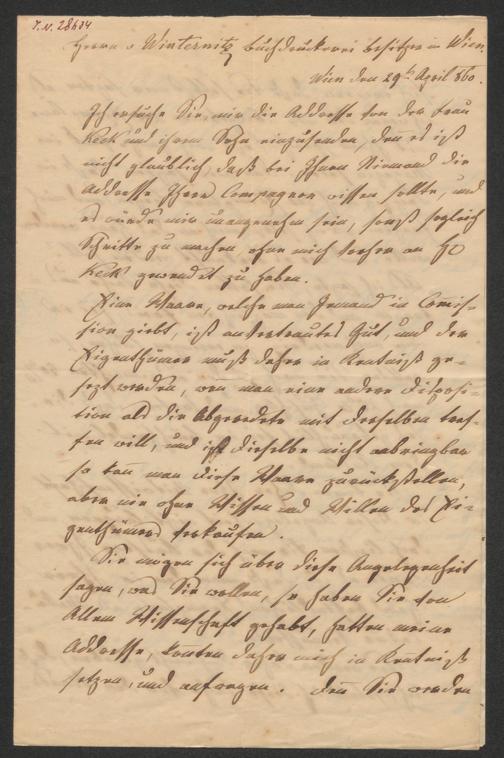 I.N. 28634
Herrn v Winternitz Buchdruckerei besitzer in Wien.
Wien den 29t April 860.
Ich ersuche Sie, mir die Addresse von der Frau
Keck und ihrem Sohn einzusenden, den es ist
nicht glaublich, daß bei Ihnen Niemand die
Addresse Ihrer Compagnon wissen sollte, und
es würde mir unangenehm sein, sonst sogleich
Schritte zu machen ohne mich vorher an H
Keck gewendet zu haben.
Eine Waare, welche man Jemand in Comis-
sion giebt, ist anvertrautes Gut, und der
Eigenthümer muß daher in Kentniß ge-
sezt werden, wen man eine andere Disposi-
tion als die Abgeredete mit derselben tref-
fen will, und ist dieselbe nicht anbringbar
so kan man diese Waare zurückstellen,
aber nie ohne Wissen und Willen des Ei-
genthümers verkaufen.
Sie mögen sich über diese Angelegenheit
sagen, was Sie wollen, so haben Sie von
Allem Wissenschaft gehabt, hatten meine
Addresse, konten daher mich in Kentniß
setzen, und anfragen. Den Sie werden